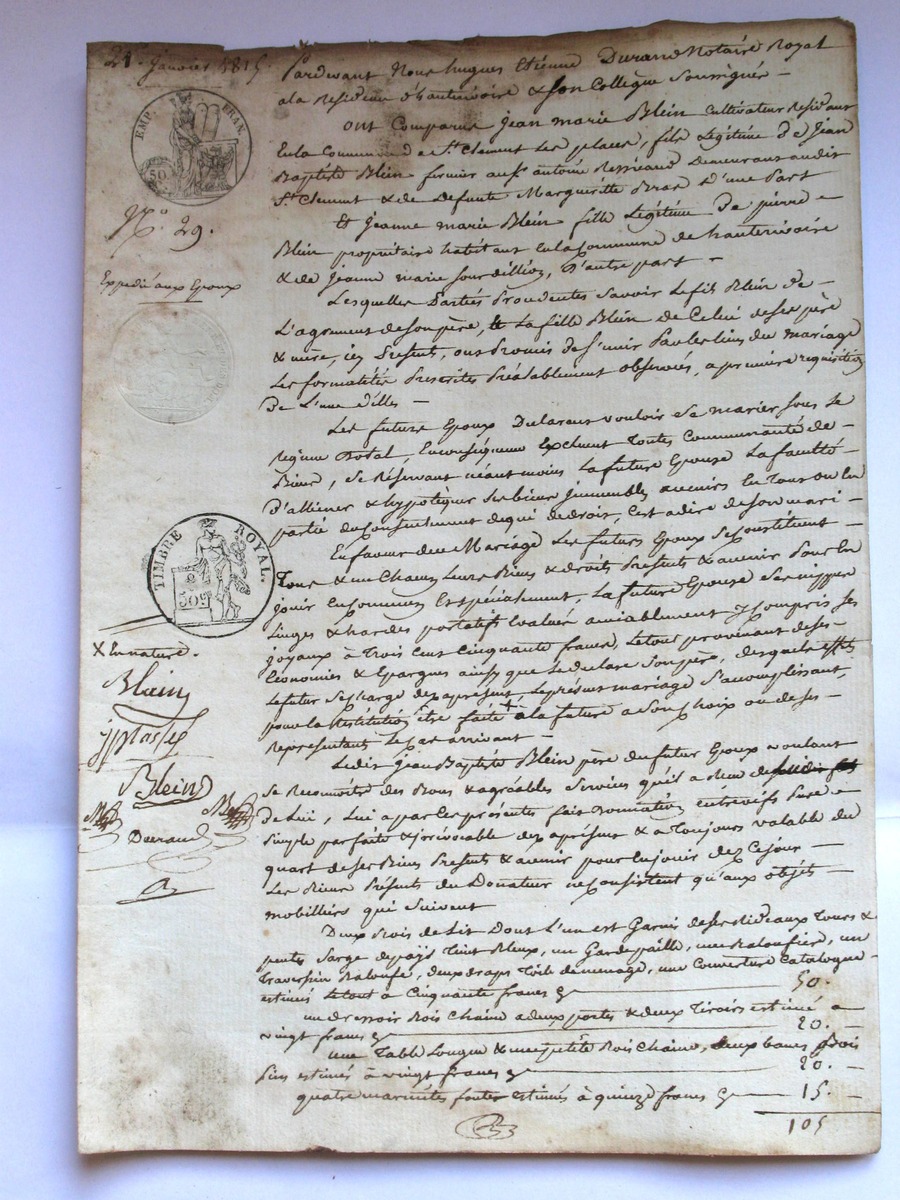 21e. Janvier 1815.
Pardevant Nous hugues Etienne Durand Notaire Royal
a la Residence d'hauterivoire & son Collègue Soussignés —
EMP. FRAN.
50
ont Comparus Jean marie Blein cultivateur Residant
En la Commune de St. Clement Les places, fils Légitime de Jean
Baptiste Blein fermier aussi antoine demeurant audit
St. Clement & de defunte Marguerite Bras d'une Part
No. 29.
Et Jeanne marie Blein fille Légitime de pierre
Blein propriétaire habitant En la Commune de hauterivoire
& de Jeanne marie Jourdillion, d'autre part —
Expedié aux Epoux
Lesquelles Parties Procedentes Savoir Le fils Blein de
L'agrement de son père, Et La fille Blein de Celui de ses père
& mère, icy Presents, ont Promis de s'unir Par les liens du mariage
Les formalités Prescrites Préalablement observées, a première requisition
de L'une d'Elles —
Les future Epoux Declarent vouloir Se marier sous Le
regime Dotal, En conséquence Excluent Toutes Communauté de
Biens, se Réservant néant moins La future Epouse La faculté
D'alliener & hypotéquer ses biens immeubles avenirs En Tout ou En
partie du Consentement de qui de droit, c'est a dire de son mari —
TIMBRE ROYAL.
50c
En faveur du Mariage Les futurs Epoux Se Constituent
Tous & un Chacun Leurs Biens & droits Presents & avenir Pour En
jouir En Commun Et spécialement, La future Epouse Ses nippes
Linges & hardes portatifs Evalués amiablement y compris ses
joyaux à Trois Cent Cinquante francs, Le tout provenant de ses
Economies & Epargnes ainsy que Le declare son père, desquels effets
Le futur Se charge dez a présent, Le présent mariage S'accomplissant,
pour la Restitution Etre faite + a la future a son choix ou de ses
Representants Le Cas arrivant —
X En nature.
Blein
Blein
Durand
Le dit Jean Baptiste Blein père du futur Epoux voulant
Se Reconnoitre des Bons & agréables Services qu'il a Recu
de Lui, Lui a par Ces présentes fait Donnation entrevifs Pure
Simple parfaite & irrévocable dez a présent & a Toujours valable du
quart de ses Biens Presents & avenir pour En jouir dez Ce jour —
Les Biens Présents du Donateur ne Consistent qu'aux objets
mobilliers qui suivent
Deux Bois de Lit Dont L'un est Garni de ses Rideaux Tours &
pentes Sarge de païs Teint Bleux, un Garde paille, une Baloufière, un
Traversin Baloufe, deux draps Toile de menage, une Couverture Catalogne
estimés Le tout a Cinquante francs — 50.
un dressoir Bois Chaine a deux portes & deux Tiroirs estimé a
vingt francs — 20.
une Table Longue & une petite Bois Chaine, deux bancs Bois
Pin estimés à vingt francs — 20.
quatre marmites fonte estimées à quinze francs — 15.
105